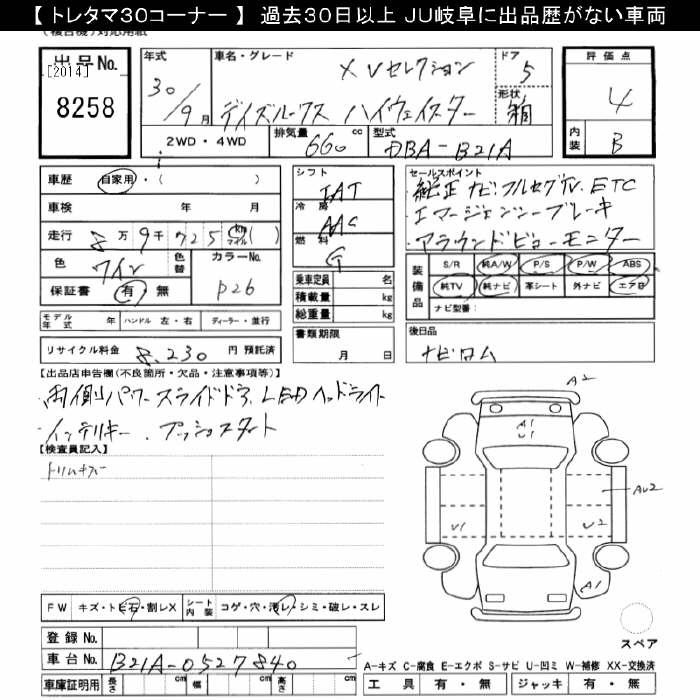 【 トレタマ30コーナー 】 過去30日以上 JU岐阜に出品歴がない車両
(複合機)対応用紙
出品No.
[2014]
8258
年式
30/9月
車名・グレード
XVセレクション
デイズルークス ハイウェイスター
ドア
5
形状
箱
2WD・4WD
排気量 660 cc
型式 DBA-B21A
評価点
4
内装 B
車歴 自家用・( )
車検 年 月
走行 8万9千725 km マイル ( )
色 ワイン 色替
カラーNo. P26
保証書 有・無
モデル年式 年 ハンドル 左・右 ディーラー・並行
リサイクル料金 8,230 円 預託済
シフト
IAT
冷房
AAC
燃料
G
乗車定員 名
積載量 kg
総重量 kg
書類期限
月 日
セールスポイント
・純正ナビ.フルセグTV.ETC
・エマージェンシーブレーキ
・アラウンドビューモニター
装備品
S/R 純A/W P/S P/W ABS
純TV 純ナビ 革シート 外ナビ エアB
ナビ型番:
後日品
ナビロム
【出品店申告欄(不良箇所・欠品・注意事項等)】
・両側パワースライドドア.LEDヘッドライト
・インテリキー.プッシュスタート
【検査員記入】
A2
A1
U1
AU2
U1
U2
A1
スペア
FW キズ・トビ石・割レX シート内装 コゲ・穴・汚レ・シミ・破レ・スレ
登録No.
車台No. B21A-0527840
車庫証明用 長さ cm 幅 cm 高さ cm
A-キズ C-腐食 E-エクボ S-サビ U-凹ミ W-補修 XX-交換済
工具 有・無 ジャッキ 有・無